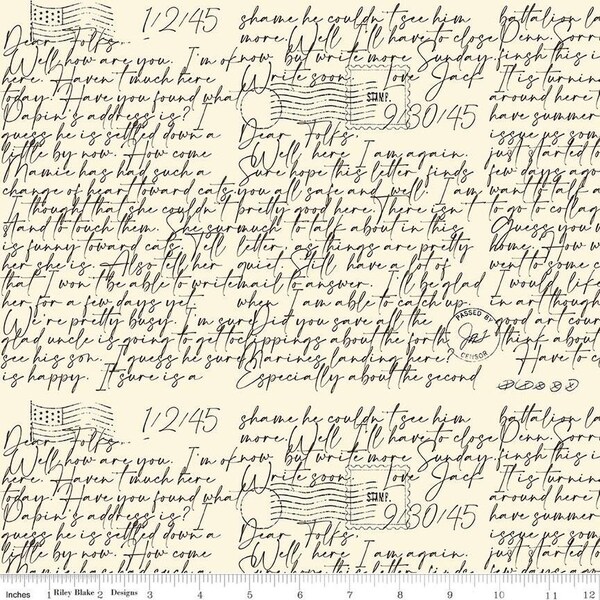 1/2/45
Dear Folks.
Well how are you. I'm ok
here. Haven't much here
today. Have you found wha
Papin's address is? I
guess he is settled down a
little by now. How come
Mamie has had such a
change of heart toward cats.
I thought that she couldn't
stand to touch them. She sur
is funny toward cats. Tell
her she is. Also tell her
that I won't be able to write
her for a few days yet.
We're pretty busy. I'm sure
glad uncle is going to get to
see his son. I guess he sure
is happy. It sure is a
shame he couldn't see him
more. Well I'll have to close
now but write more Sunday.
Write soon. love Jack
STAMP.
9/30/45
Dear Folks.
Well, here I am again.
Sure hope this letter finds
you all safe and well. I am
pretty good here. There isn't
much to talk about in this
letter, as things are pretty
quiet. Still have a lot of
mail to answer. I'll be glad
when I am able to catch up.
Did you save all the
clippings about the forth
Marines landing here?
Especially about the second
PASSED BY
CENSOR
battalion la
Penn. Sorr
finsh this i
It is turnin
around here t
have summer
issue us som
just started t
few days ago
want to talk a
to go to colla
Guess you w
home. How w
went to some c
I would life
in art though
good art cour
think about
Have to c
1/2/45
Dear Folks.
Well how are you. I'm ok
here. Haven't much here
today. Have you found wha
Papin's address is? I
guess he is settled down a
little by now. How come
shame he couldn't see him
more. Well I'll have to close
now but write more Sunday.
Write soon. love Jack
STAMP.
9/30/45
Dear Folks.
Well, here I am again.
Sure hope this letter finds
battalion la
Penn. Sorr
finsh this i
It is turnin
around here t
have summer
issue us som
just started t
few days ago
Inches 1 Riley Blake Designs 3 4 5 6 7 8 9 10 11 12